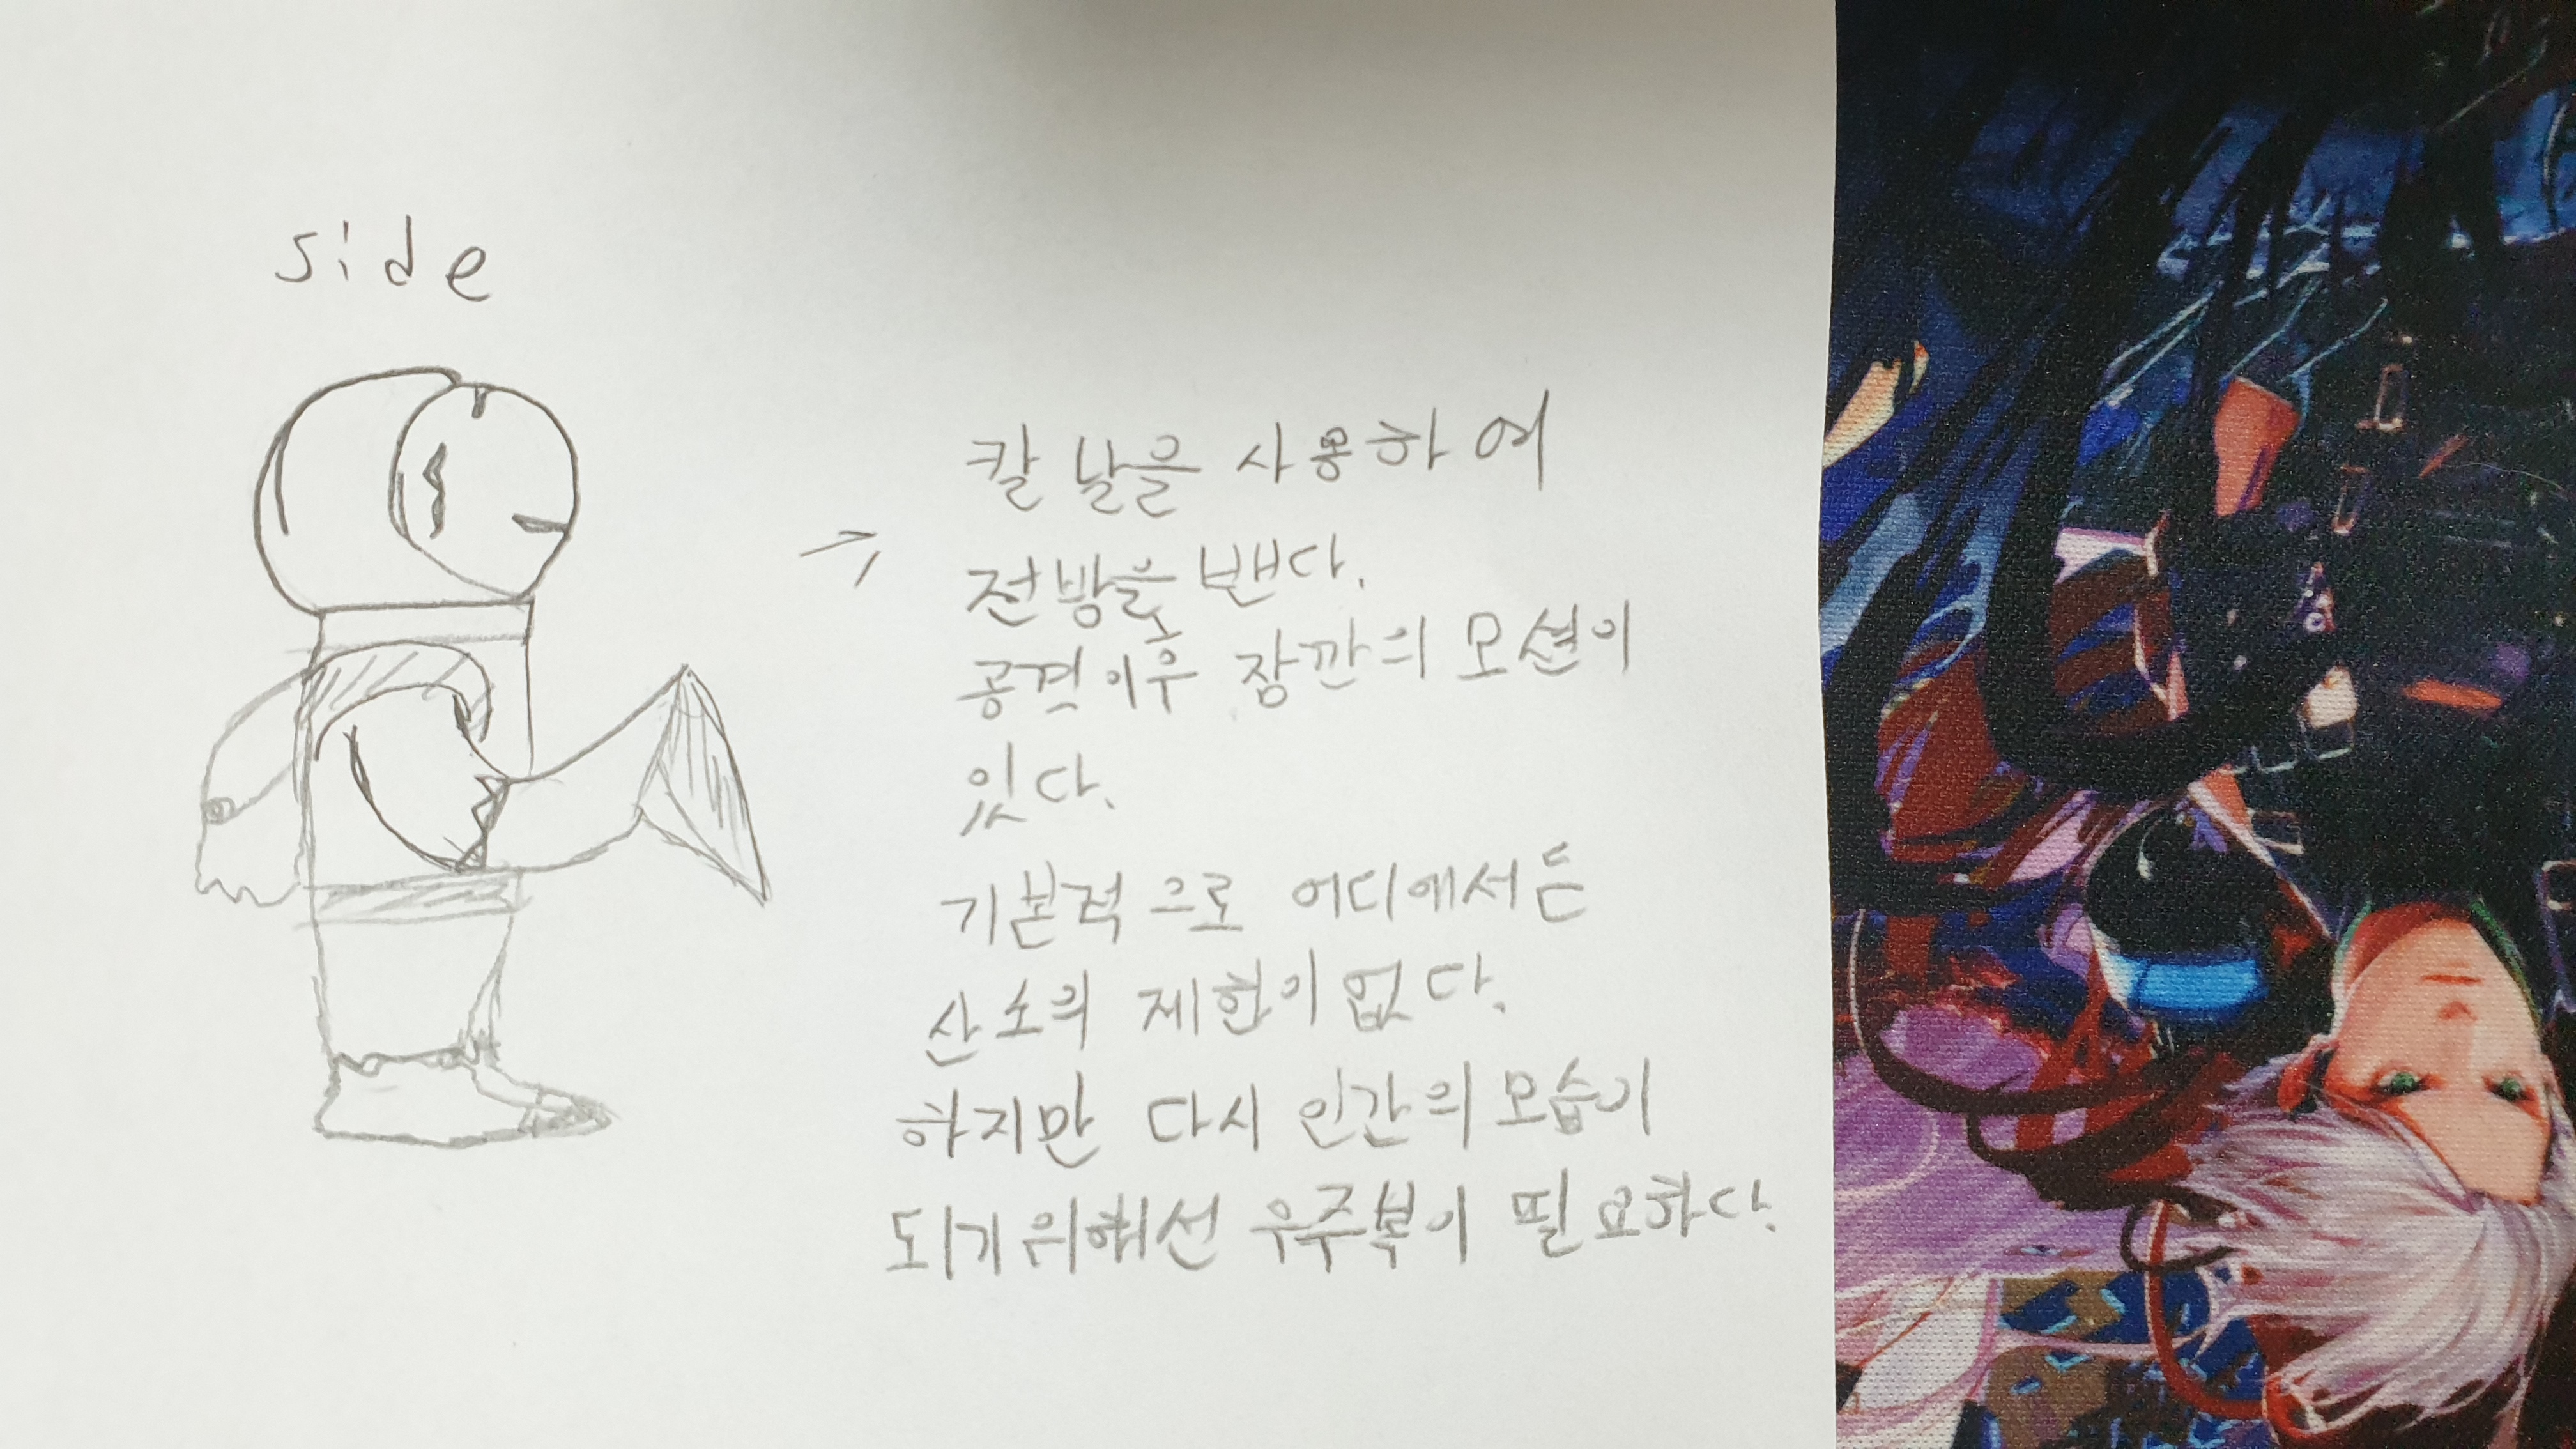 side
칼날을 사용하여
전방을 벤다.
공격이후 잠깐의 모션이
있다.
기본적으로 어디에서든
산소의 제한이 없다.
하지만 다시 인간의 모습이
되기 위해선 우주복이 필요하다.